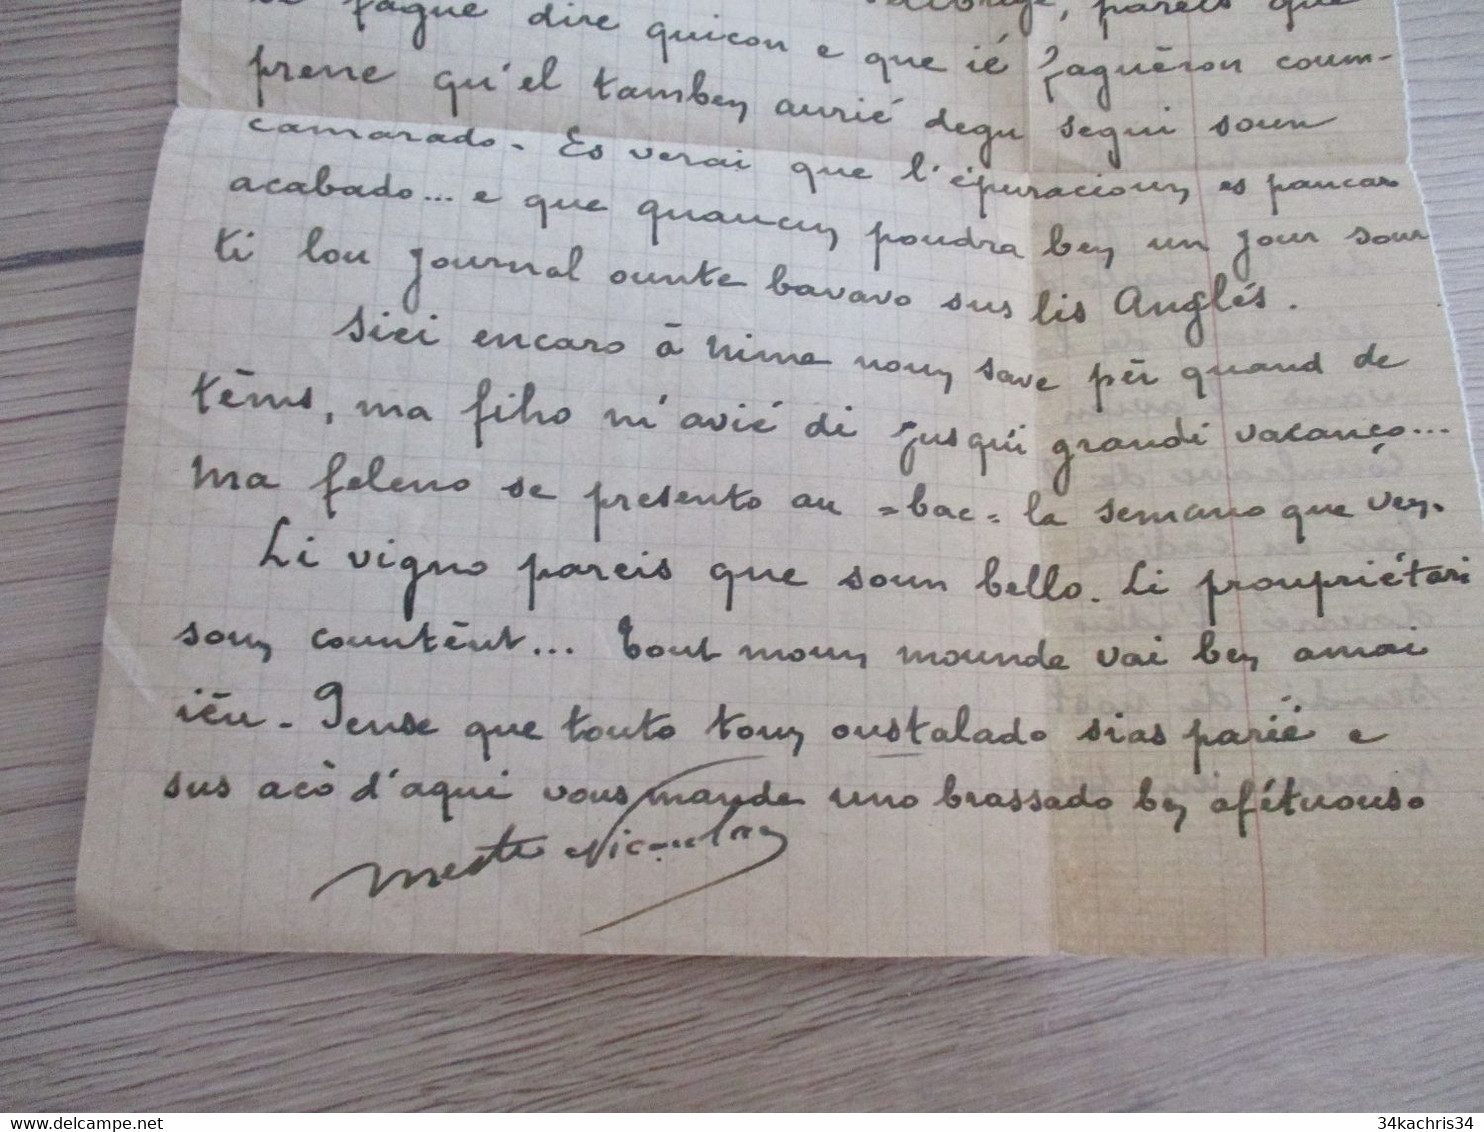 se fague dire quicon e que ié faguèron coum-
prene qu'el tambèn aurié degu segui soun
camarado. Es verai que l'épuracioun es pancar
acabado... e que quaucun poudra ben un jour sour
ti lou journal ounte bavavo sus lis Anglés.
Siei encaro à Nime noun save pèr quand de
tèms, ma fiho m'avié di jusqu'i grandi vacanço...
Ma feleno se presento au "bac" la semano que ven.
Li vigno pareis que soun bello. Li proupriétari
soun countènt... Tout moun mounde vai ben amai
ièu. Pense que touto toun oustalado sias parié e
sus acò d'aqui vous mande uno brassado ben afétuouso
Meste Nicoulau
34kachris34